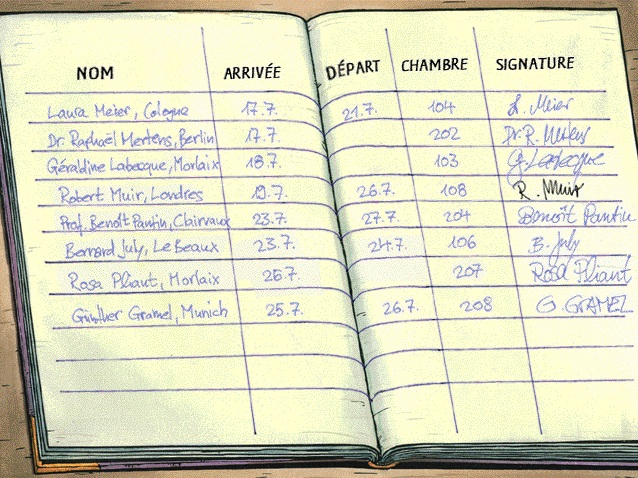 NOM ARRIVÉE DÉPART CHAMBRE SIGNATURE
Laura Meier, Cologne 17.7. 21.7. 104 L. Meier
Dr. Raphaël Mertens, Berlin 17.7. 202 Dr. R. Mertens
Géraldine Labecque, Morlaix 18.7. 103 G. Labecque
Robert Muir, Londres 19.7. 26.7. 108 R. Muir
Prof. Benoît Pantin, Clairvaux 23.7. 27.7. 204 Benoît Pantin
Bernard July, Le Beaux 23.7. 24.7. 106 B. July
Rosa Pliant, Morlaix 25.7. 207 Rosa Pliant
Günther Gramel, Munich 25.7. 26.7. 208 G. GRAMEL